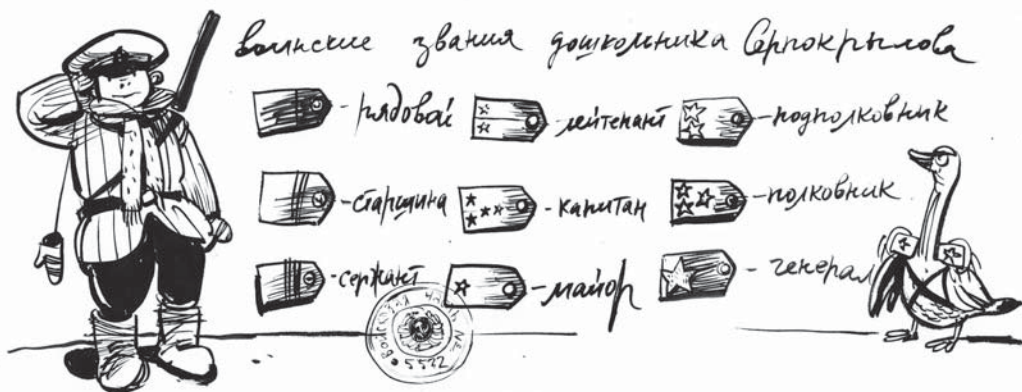 воинские звания дошкольника Серпокрылова
-рядовой -лейтенант -подполковник
-старшина -капитан -полковник
-сержант -майор -генерал
ВОИНСКАЯ ЧАСТЬ №
5522